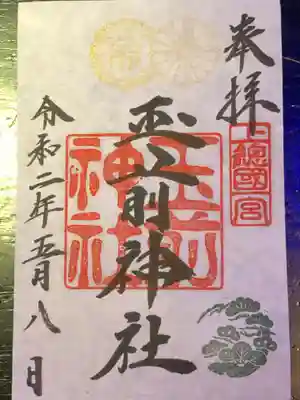 奉拝
上総国一宮
玉前神社
玉前神社
令和二年五月八日